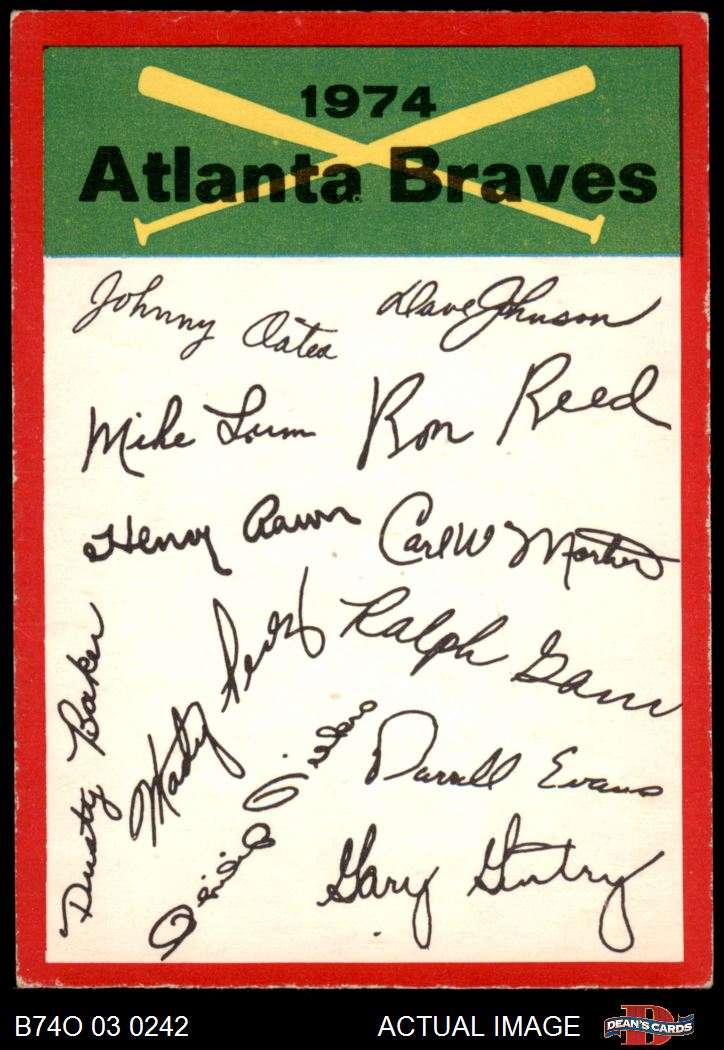 1974
Atlanta Braves
Johnny Oates
Dave Johnson
Mike Lum
Ron Reed
Henry Aaron
Carl W Morton
Dusty Baker
Marty Perez
Ralph Garr
Darrell Evans
Gary Gentry
B74O 03 0242
ACTUAL IMAGE
DEAN'S CARDS